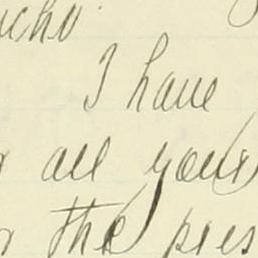 I have
all your
the pres